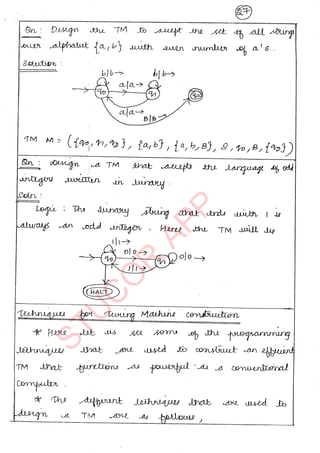 27
Qn : Design the TM to accept the set of all strings
over alphabet {a,b} with even number of a's.
Solution :
b/b→ b/b→
a/a→
q0 q1 q2
a/a→
B/B→
TM M = ({q0, q1, q2}, {a,b}, {a,b,B}, δ, q0, B, {q2})
Qn : Design a TM that accepts the language of odd
integers written in binary.
Soln :
Logic : The binary string that ends with 1 is
always an odd integer. Hence the TM will be
1/1→
0/0→
q0 q1 0/0→
1/1→
HALT
Techniques for Turing Machine Construction
* Here let us see some of the programming
techniques that are used to construct an efficient
TM that functions as powerful as a conventional
computer.
* The different techniques that are used to
design a TM are as follows,
STUCOR APP